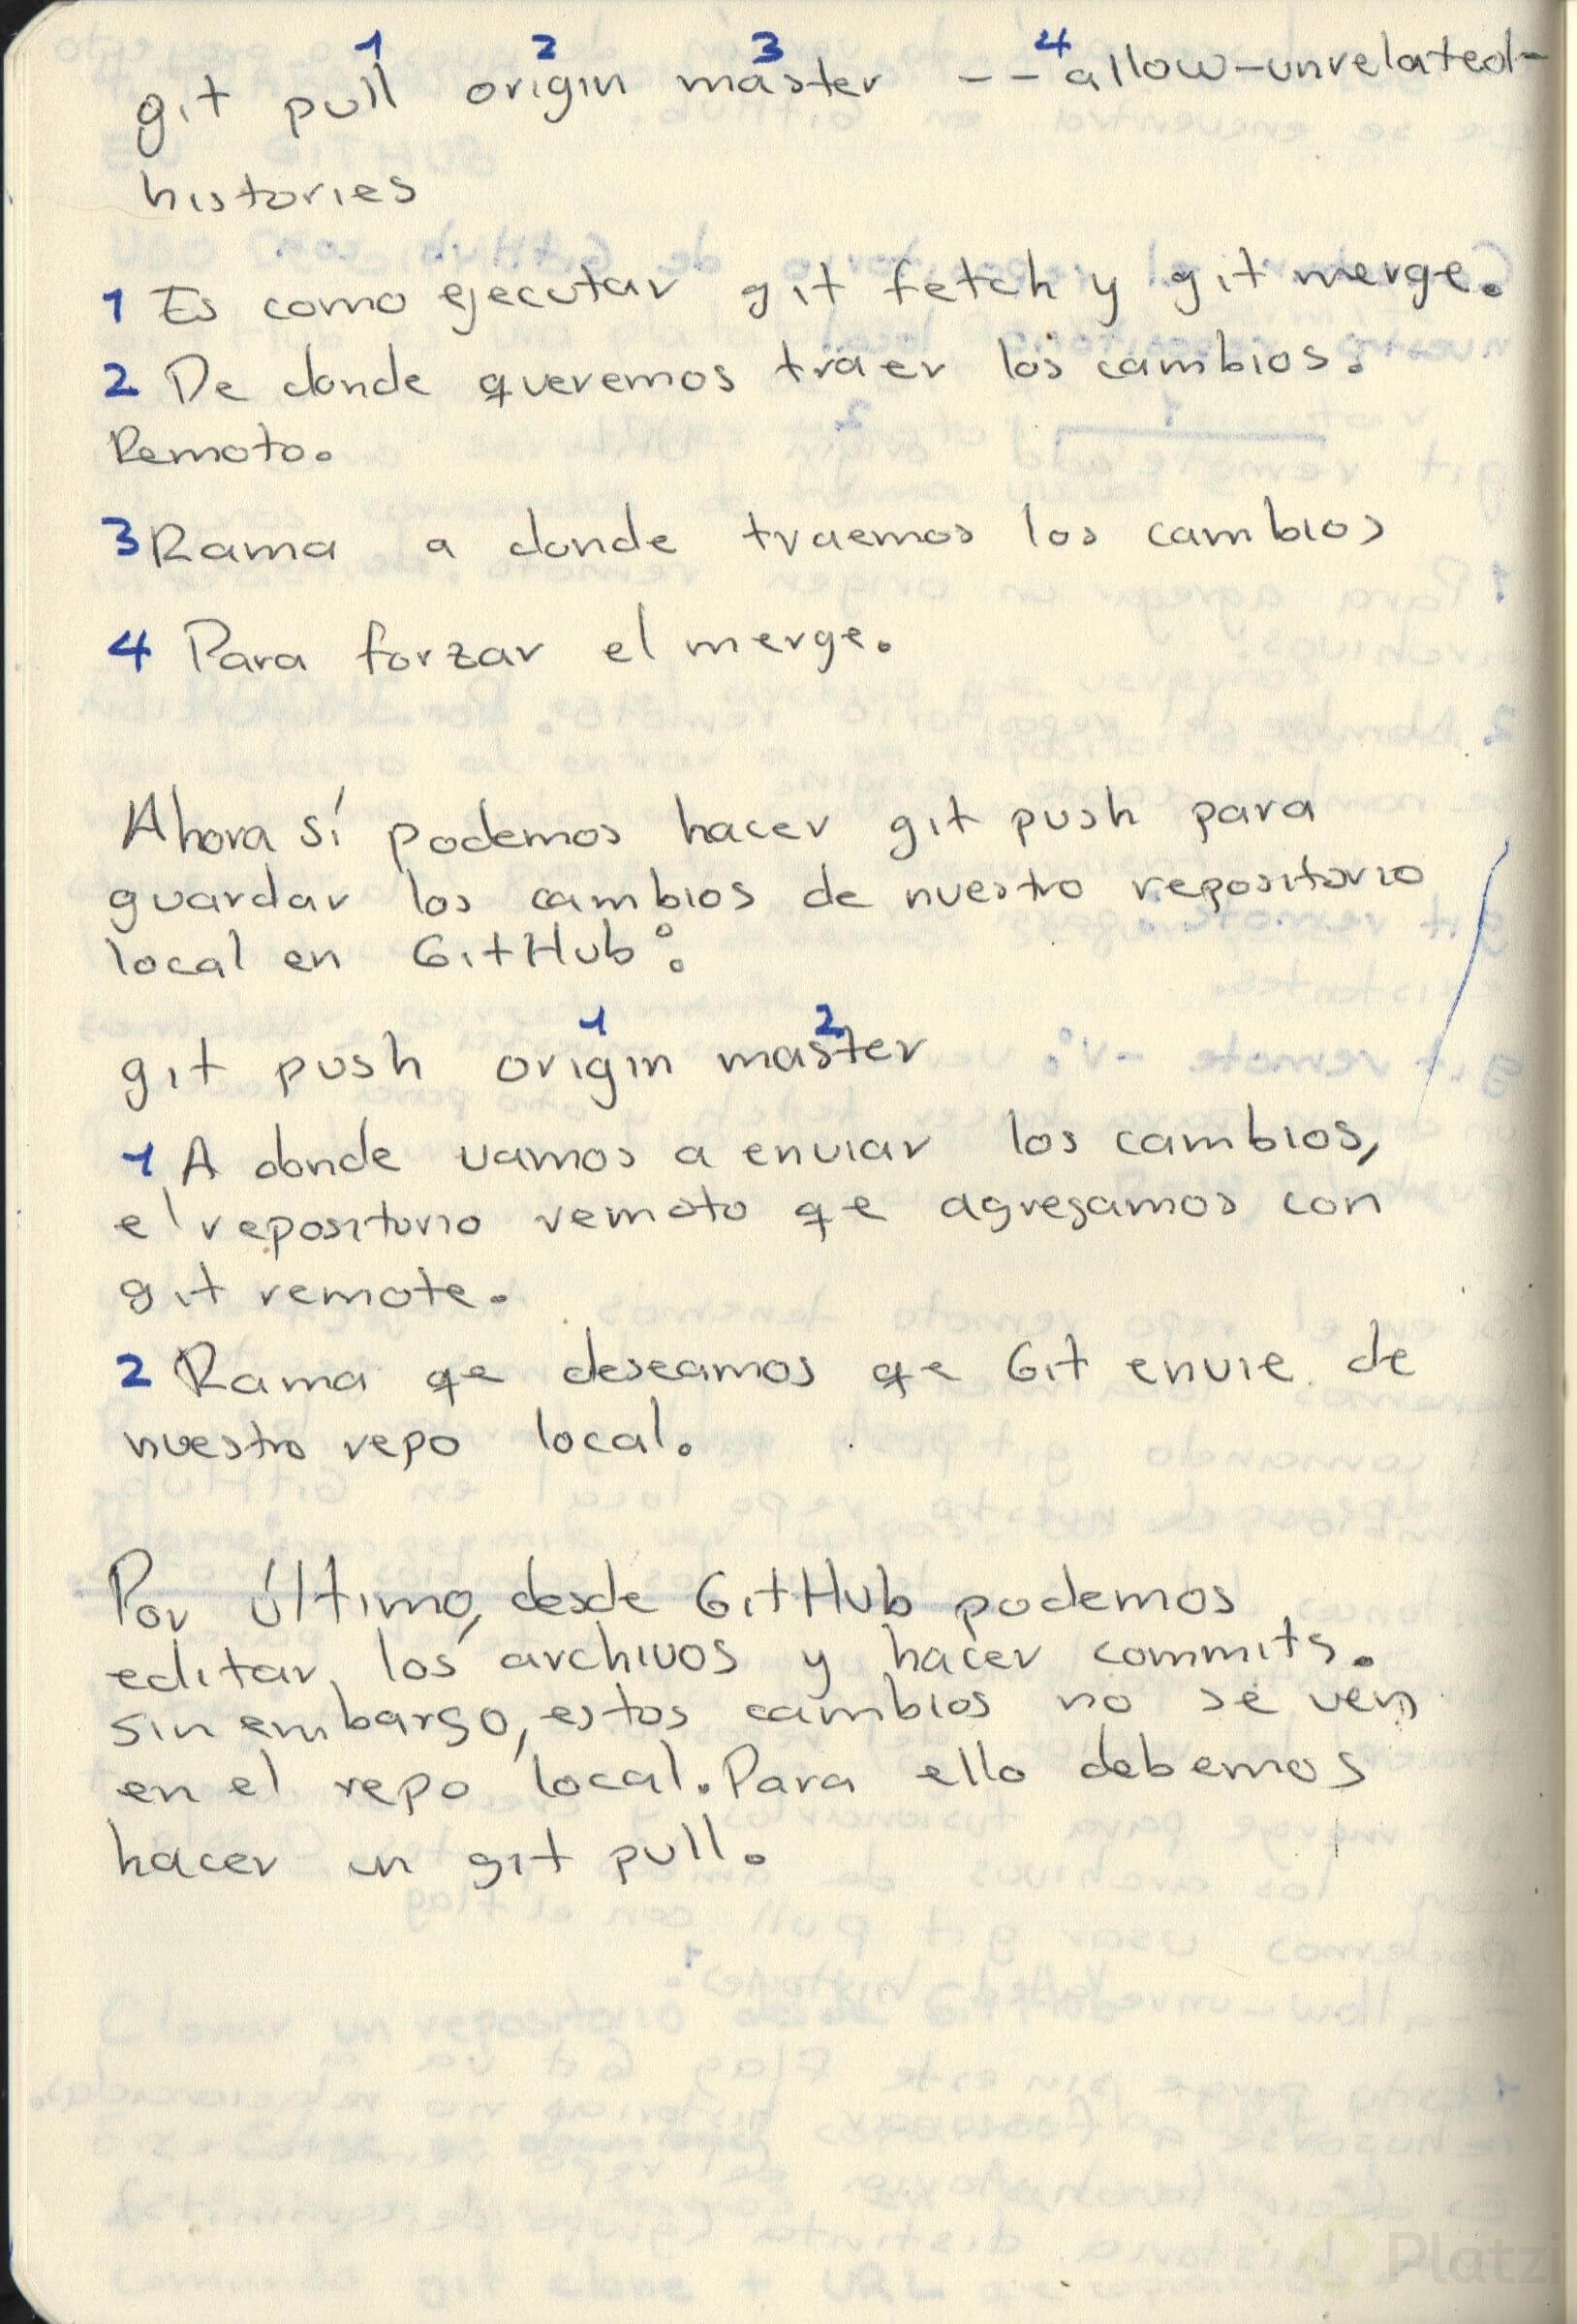 1 2 3 4
git pull origin master --allow-unrelated-
histories
1 Es como ejecutar git fetch y git merge.
2 De donde queremos traer los cambios:
Remoto.
3 Rama a donde traemos los cambios
4 Para forzar el merge.
Ahora sí podemos hacer git push para
guardar los cambios de nuestro repositorio
local en GitHub:
1 2
git push origin master
1 A donde vamos a enviar los cambios,
el repositorio remoto qe agregamos con
git remote.
2 Rama qe deseamos qe Git envie de
nuestro repo local.
Por último, desde GitHub podemos
editar los archivos y hacer commits.
sin embargo, estos cambios no se ven
en el repo local. Para ello debemos
hacer un git pull.
Platzi